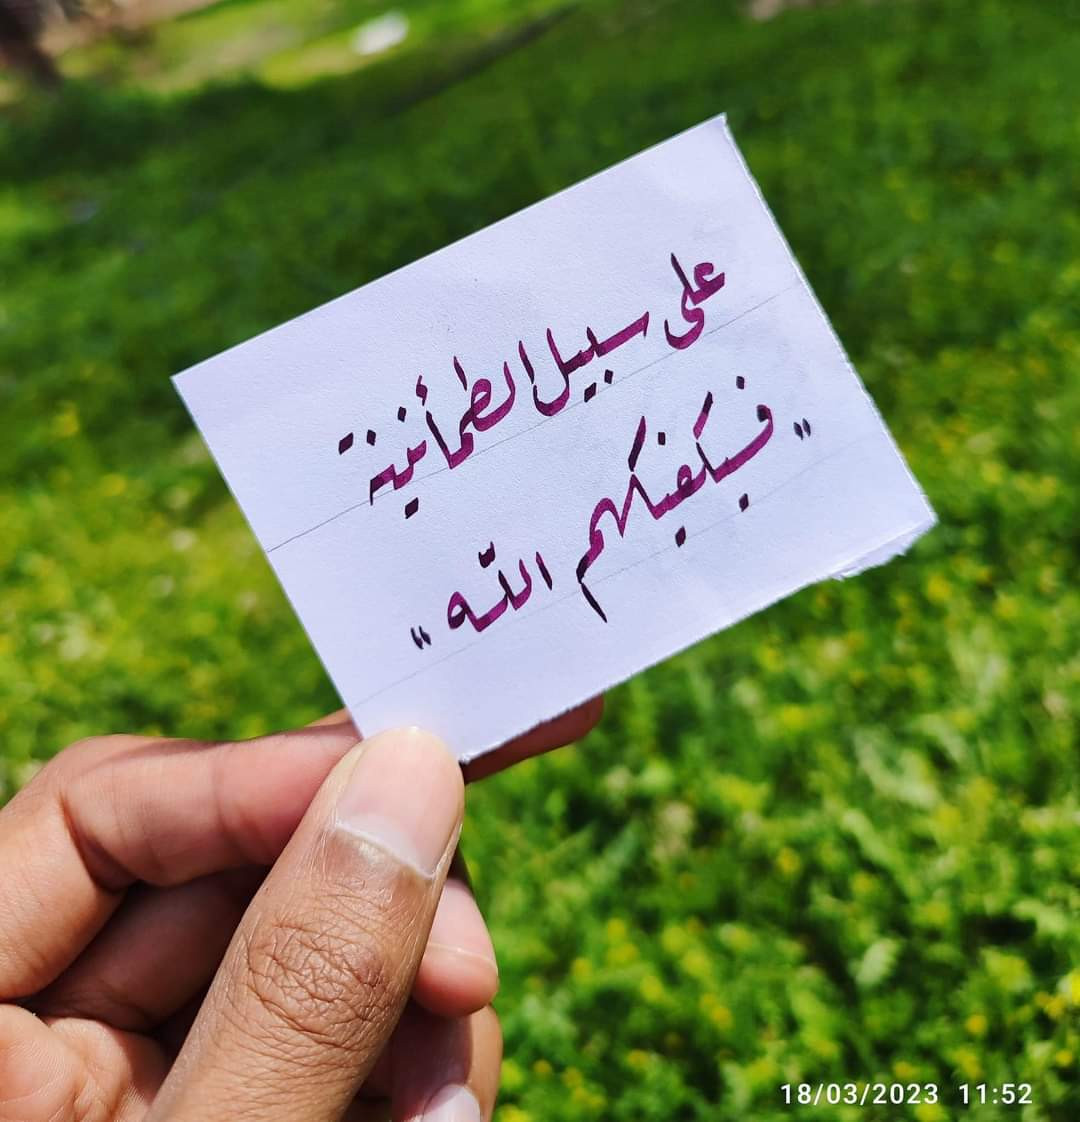 على سبيل الطمأنينة
"فسيكفيكهم اللّه"
18/03/2023 11:52